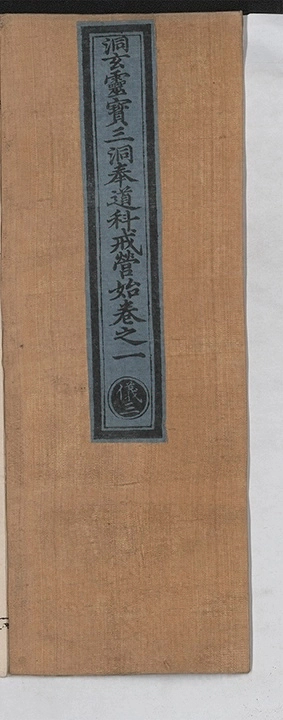 洞玄靈寶三洞奉道科戒營始卷之一
儀三